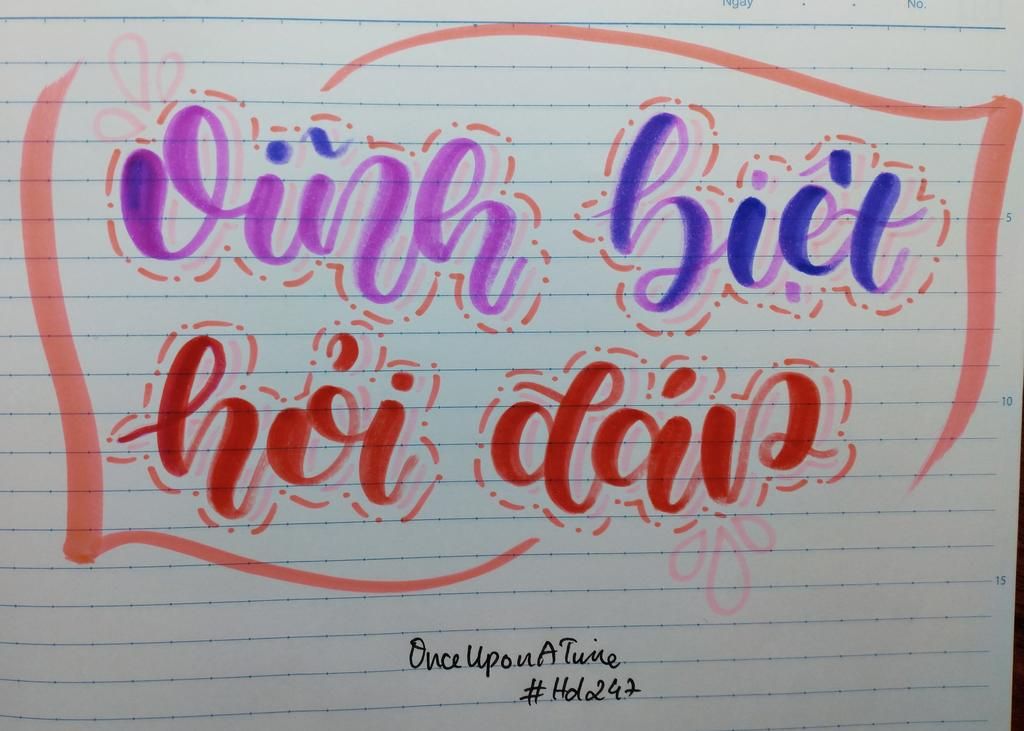 Ngày No.
vĩnh biệt
5
hỏi đáp
10
15
OnceUponATime
#Hdo247